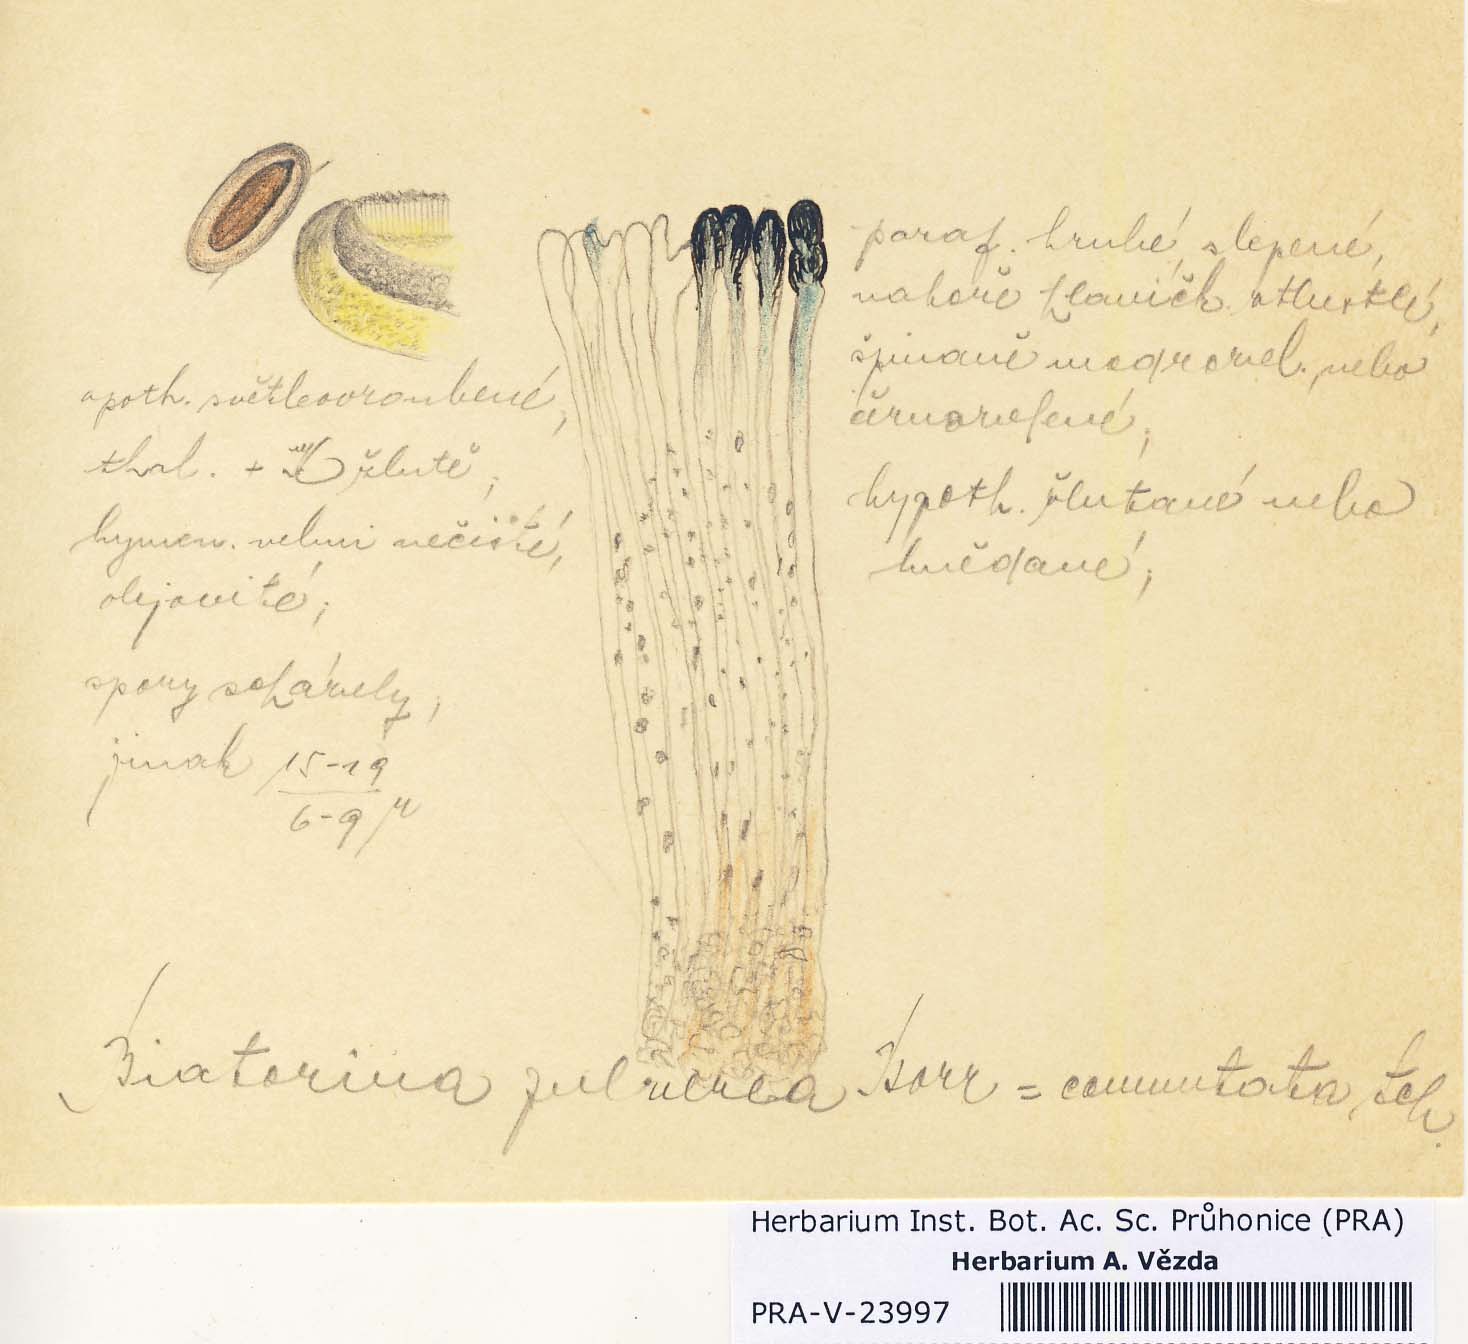 apoth. světleovroubené,
thal. + žlutě;
hymen. velmi nečisté,
olejovité;
spory schárely,
jinak 15-19
6-9 µ
paraf. hrubé, slepené,
nahoře hlavičk. otlustlé,
špinavě modrozel. nebo
černozelené;
hypoth. žlutavé nebo
hnědavé;
Biatorina pulverea Borr = commutata
Herbarium Inst. Bot. Ac. Sc. Průhonice (PRA)
Herbarium A. Vězda
PRA-V-23997